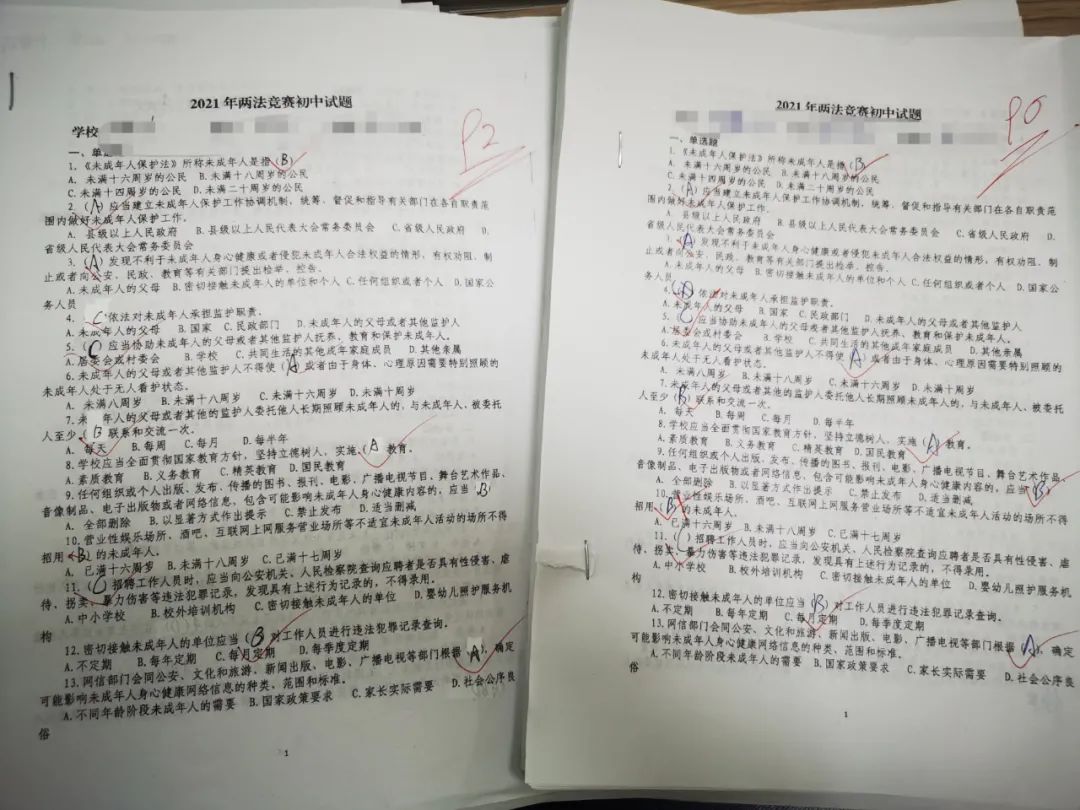 2021年两法竞赛初中试题
92
学校
一、单选
1.《未成年人保护法》所称未成年人是指(B)
A. 未满十六周岁的公民 B.未满十八周岁的公民
C.未满十四周岁的公民 D.未满二十周岁的公民
2.(A)应当建立未成年人保护工作协调机制,统筹、督促和指导有关部门在各自职责范
围内做好未成年人保护工作。
A. 县级以上人民政府 B.县级以上人民代表大会常务委员会 C.省级人民政府 D.
省级人民代表大会常务委员会
3.(A)发现不利于未成年人身心健康或者侵犯未成年人合法权益的情形,有权劝阻、制
止或者向公安、民政、教育等有关部门提出检举、控告。
A.未成年人的父母 B.密切接触未成年人的单位和个人 C.任何组织或者个人 D.国家公
务人员
4. C 依法对未成年人承担监护职责。
A.未成年人的父母 B.国家 C.民政部门 D.未成年人的父母或者其他监护人
5.(C 应当协助未成年人的父母或者其他监护人抚养、教育和保护未成年人。
A.居委会或村委会 B.学校 C.共同生活的其他成年家庭成员 D.其他亲属
6.未成年人的父母或者其他监护人不得使(A 或者由于身体、心理原因需要特别照顾的
未成年人处于无人看护状态。
A. 未满八周岁 B.未满十八周岁 C.未满十六周岁 D.未满十周岁
7.未 年人的父母或者其他的监护人委托他人长期照顾未成年人的,与未成年人、被委托
人至少(B 联系和交流一次。
A. 每天 B.每周 C.每月 D.每半年
8.学校应当全面贯彻国家教育方针,坚持立德树人,实施(A 教育。
A.素质教育 B.义务教育 C.精英教育 D.国民教育
9.任何组织或个人出版、发布、传播的图书、报刊、电影、广播电视节目、舞台艺术作品、
音像制品、电子出版物或者网络信息,包含可能影响未成年人身心健康内容的,应当(B)
A. 全部删除 B.以显著方式作出提示 C.禁止发布 D.适当删减
10.营业性娱乐场所、酒吧、互联网上网服务营业场所等不适宜未成年人活动的场所不得
招用(B)的未成年人。
A.已满十六周岁 B.未满十八周岁 C.已满十七周岁
11.(C 招聘工作人员时,应当向公安机关、人民检察院查询应聘者是否具有性侵害、虐
待、拐卖、暴力伤害等违法犯罪记录,发现具有上述行为记录的,不得录用。
A.中小学校 B.校外培训机构 C.密切接触未成年人的单位 D.婴幼儿照护服务机
构
12.密切接触未成年人的单位应当(B 对工作人员进行违法犯罪记录查询。
A.不定期 B.每年定期 C.每月定期 D.每季度定期
13.网信部门会同公安、文化和旅游、新闻出版、电影、广播电视等部门根据(A),确定
可能影响未成年人身心健康网络信息的种类、范围和标准。
A.不同年龄阶段未成年人的需要 B.国家政策要求 C.家长实际需要 D.社会公序良
俗
1
2021年两法竞赛初中试题
90
一、单选题
1.《未成年人保护法》所称未成年人是指(B)
A. 未满十六周岁的公民 B.未满十八周岁的公民
C.未满十四周岁的公民 D.未满二十周岁的公民
2.(A)应当建立未成年人保护工作协调机制,统筹、督促和指导有关部门在各自职责范
围内做好未成年人保护工作。
A. 县级以上人民政府 B.县级以上人民代表大会常务委员会 C.省级人民政府 D.
省级人民代表大会常务委员会
3.(A 发现不利于未成年人身心健康或者侵犯未成年人合法权益的情形,有权劝阻、制
止或者向公安、民政、教育等有关部门提出检举、控告。
A.未成年人的父母 B.密切接触未成年人的单位和个人 C.任何组织或者个人 D.国家公
务人员
4.(D 依法对未成年人承担监护职责。
A.未成年人的父母 B.国家 C.民政部门 D.未成年人的父母或者其他监护人
5.(C)应当协助未成年人的父母或者其他监护人抚养、教育和保护未成年人。
A.居委会或村委会 B.学校 C.共同生活的其他成年家庭成员 D.其他亲属
6.未成年人的父母或者其他监护人不得使(A)或者由于身体、心理原因需要特别照顾的
未成年人处于无人看护状态。
A. 未满八周岁 B.未满十八周岁 C.未满十六周岁 D.未满十周岁
7.未成年人的父母或者其他的监护人委托他人长期照顾未成年人的,与未成年人、被委托
人至少(B)联系和交流一次。
A. 每天 B.每周 C.每月 D.每半年
8.学校应当全面贯彻国家教育方针,坚持立德树人,实施(A)教育。
A.素质教育 B.义务教育 C.精英教育 D.国民教育
9.任何组织或个人出版、发布、传播的图书、报刊、电影、广播电视节目、舞台艺术作品、
音像制品、电子出版物或者网络信息,包含可能影响未成年人身心健康内容的,应当(B)
A. 全部删除 B.以显著方式作出提示 C.禁止发布 D.适当删减
10.营业性娱乐场所、酒吧、互联网上网服务营业场所等不适宜未成年人活动的场所不得
招用(B)的未成年人。
A.已满十六周岁 B.未满十八周岁 C.已满十七周岁
11.(C)招聘工作人员时,应当向公安机关、人民检察院查询应聘者是否具有性侵害、虐
待、拐卖、暴力伤害等违法犯罪记录,发现具有上述行为记录的,不得录用。
A.中小学校 B.校外培训机构 C.密切接触未成年人的单位 D.婴幼儿照护服务机
构
12.密切接触未成年人的单位应当(B)对工作人员进行违法犯罪记录查询。
A.不定期 B.每年定期 C.每月定期 D.每季度定期
13.网信部门会同公安、文化和旅游、新闻出版、电影、广播电视等部门根据(A),确定
可能影响未成年人身心健康网络信息的种类、范围和标准。
A.不同年龄阶段未成年人的需要 B.国家政策要求 C.家长实际需要 D.社会公序良
俗
1